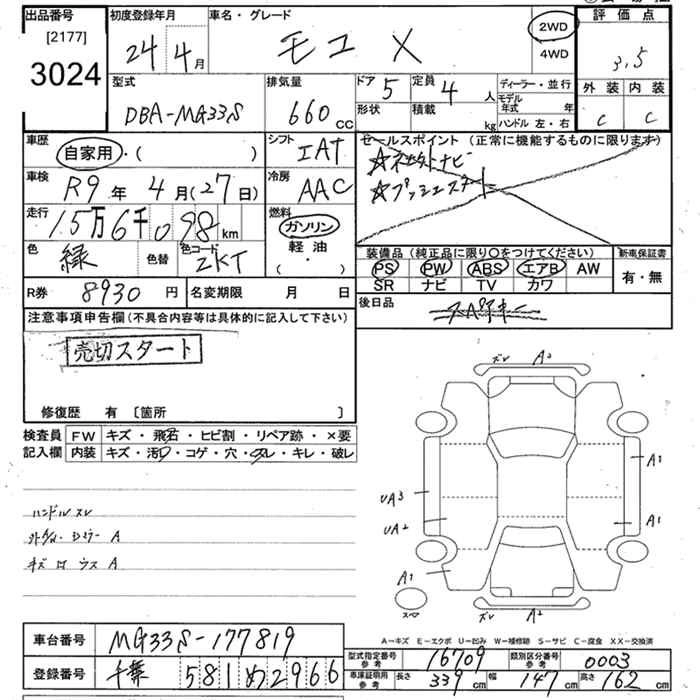 出品番号
[2177]
3024
初度登録年月
24 4月
車名・グレード
モコ X
2WD
4WD
評価点
3.5
外装 内装
C C
型式
DBA-MG33S
排気量
660 CC
ドア 5
定員 4 人
形状 積載 kg
ディーラー・並行
モデル年式 年
ハンドル 左・右
車歴
自家用・( )
シフト
IAT
セールスポイント (正常に機能するものに限ります)
☆社外ナビ
☆プッシュスタート
車検
R9年 4月(27日)
冷房
AAC
走行
15万6千098km
燃料
ガソリン
軽油
( ・ )
色
緑
色替
色コード
ZKT
装備品 (純正品に限り〇をつけてください)
PS PW ABS エアB AW
SR ナビ TV カワ
新車保証書
有・無
R券 8930円
名変期限 月 日
後日品
注意事項申告欄(不具合内容等は具体的に記入して下さい)
売切スタート
修復歴 有 〔箇所 〕
検査員 FW キズ・飛石・ヒビ割・リペア跡・×要
記入欄 内装 キズ・汚レ・コゲ・穴・スレ・キレ・破レ
ハンドルスレ
A
A
ズレ A2
A1
UA3
UA2
A1
A1
スペア
ズレ A2
A-キズ E-エクボ U-凹み W-補修跡 S-サビ C-腐食 XX-交換済
車台番号 MG33S-177819
登録番号 千葉 581 め 2966
型式指定番号 参考 16709
類別区分番号 参考 0003
車庫証明用 参考 長さ 339cm 幅 147cm 高さ 162cm